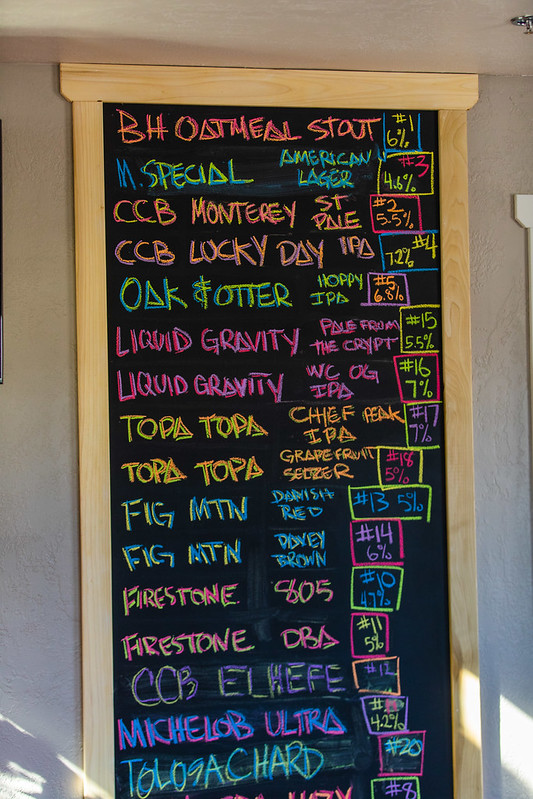 BH OATMEAL STOUT #1 6%
M. SPECIAL AMERICAN LAGER #3 4.6%
CCB MONTEREY ST PALE #2 5.5%
CCB LUCKY DAY IPA #4 7.2%
OAK & OTTER HOPPY IPA #5 6.8%
LIQUID GRAVITY PALE FROM THE CRYPT #15 5.5%
LIQUID GRAVITY WC OG IPA #16 7%
TOPA TOPA CHIEF PEAK IPA #17 7%
TOPA TOPA GRAPEFRUIT SELTZER #18 5%
FIG MTN DANISH RED #13 5%
FIG MTN DAVEY BROWN #14 6%
FIRESTONE 805 #10 4.7%
FIRESTONE DBA #11 5%
CCB EL HEFE #12
MICHELOB ULTRA 4.2%
TOLOSA CHARD #20
HAZY #8